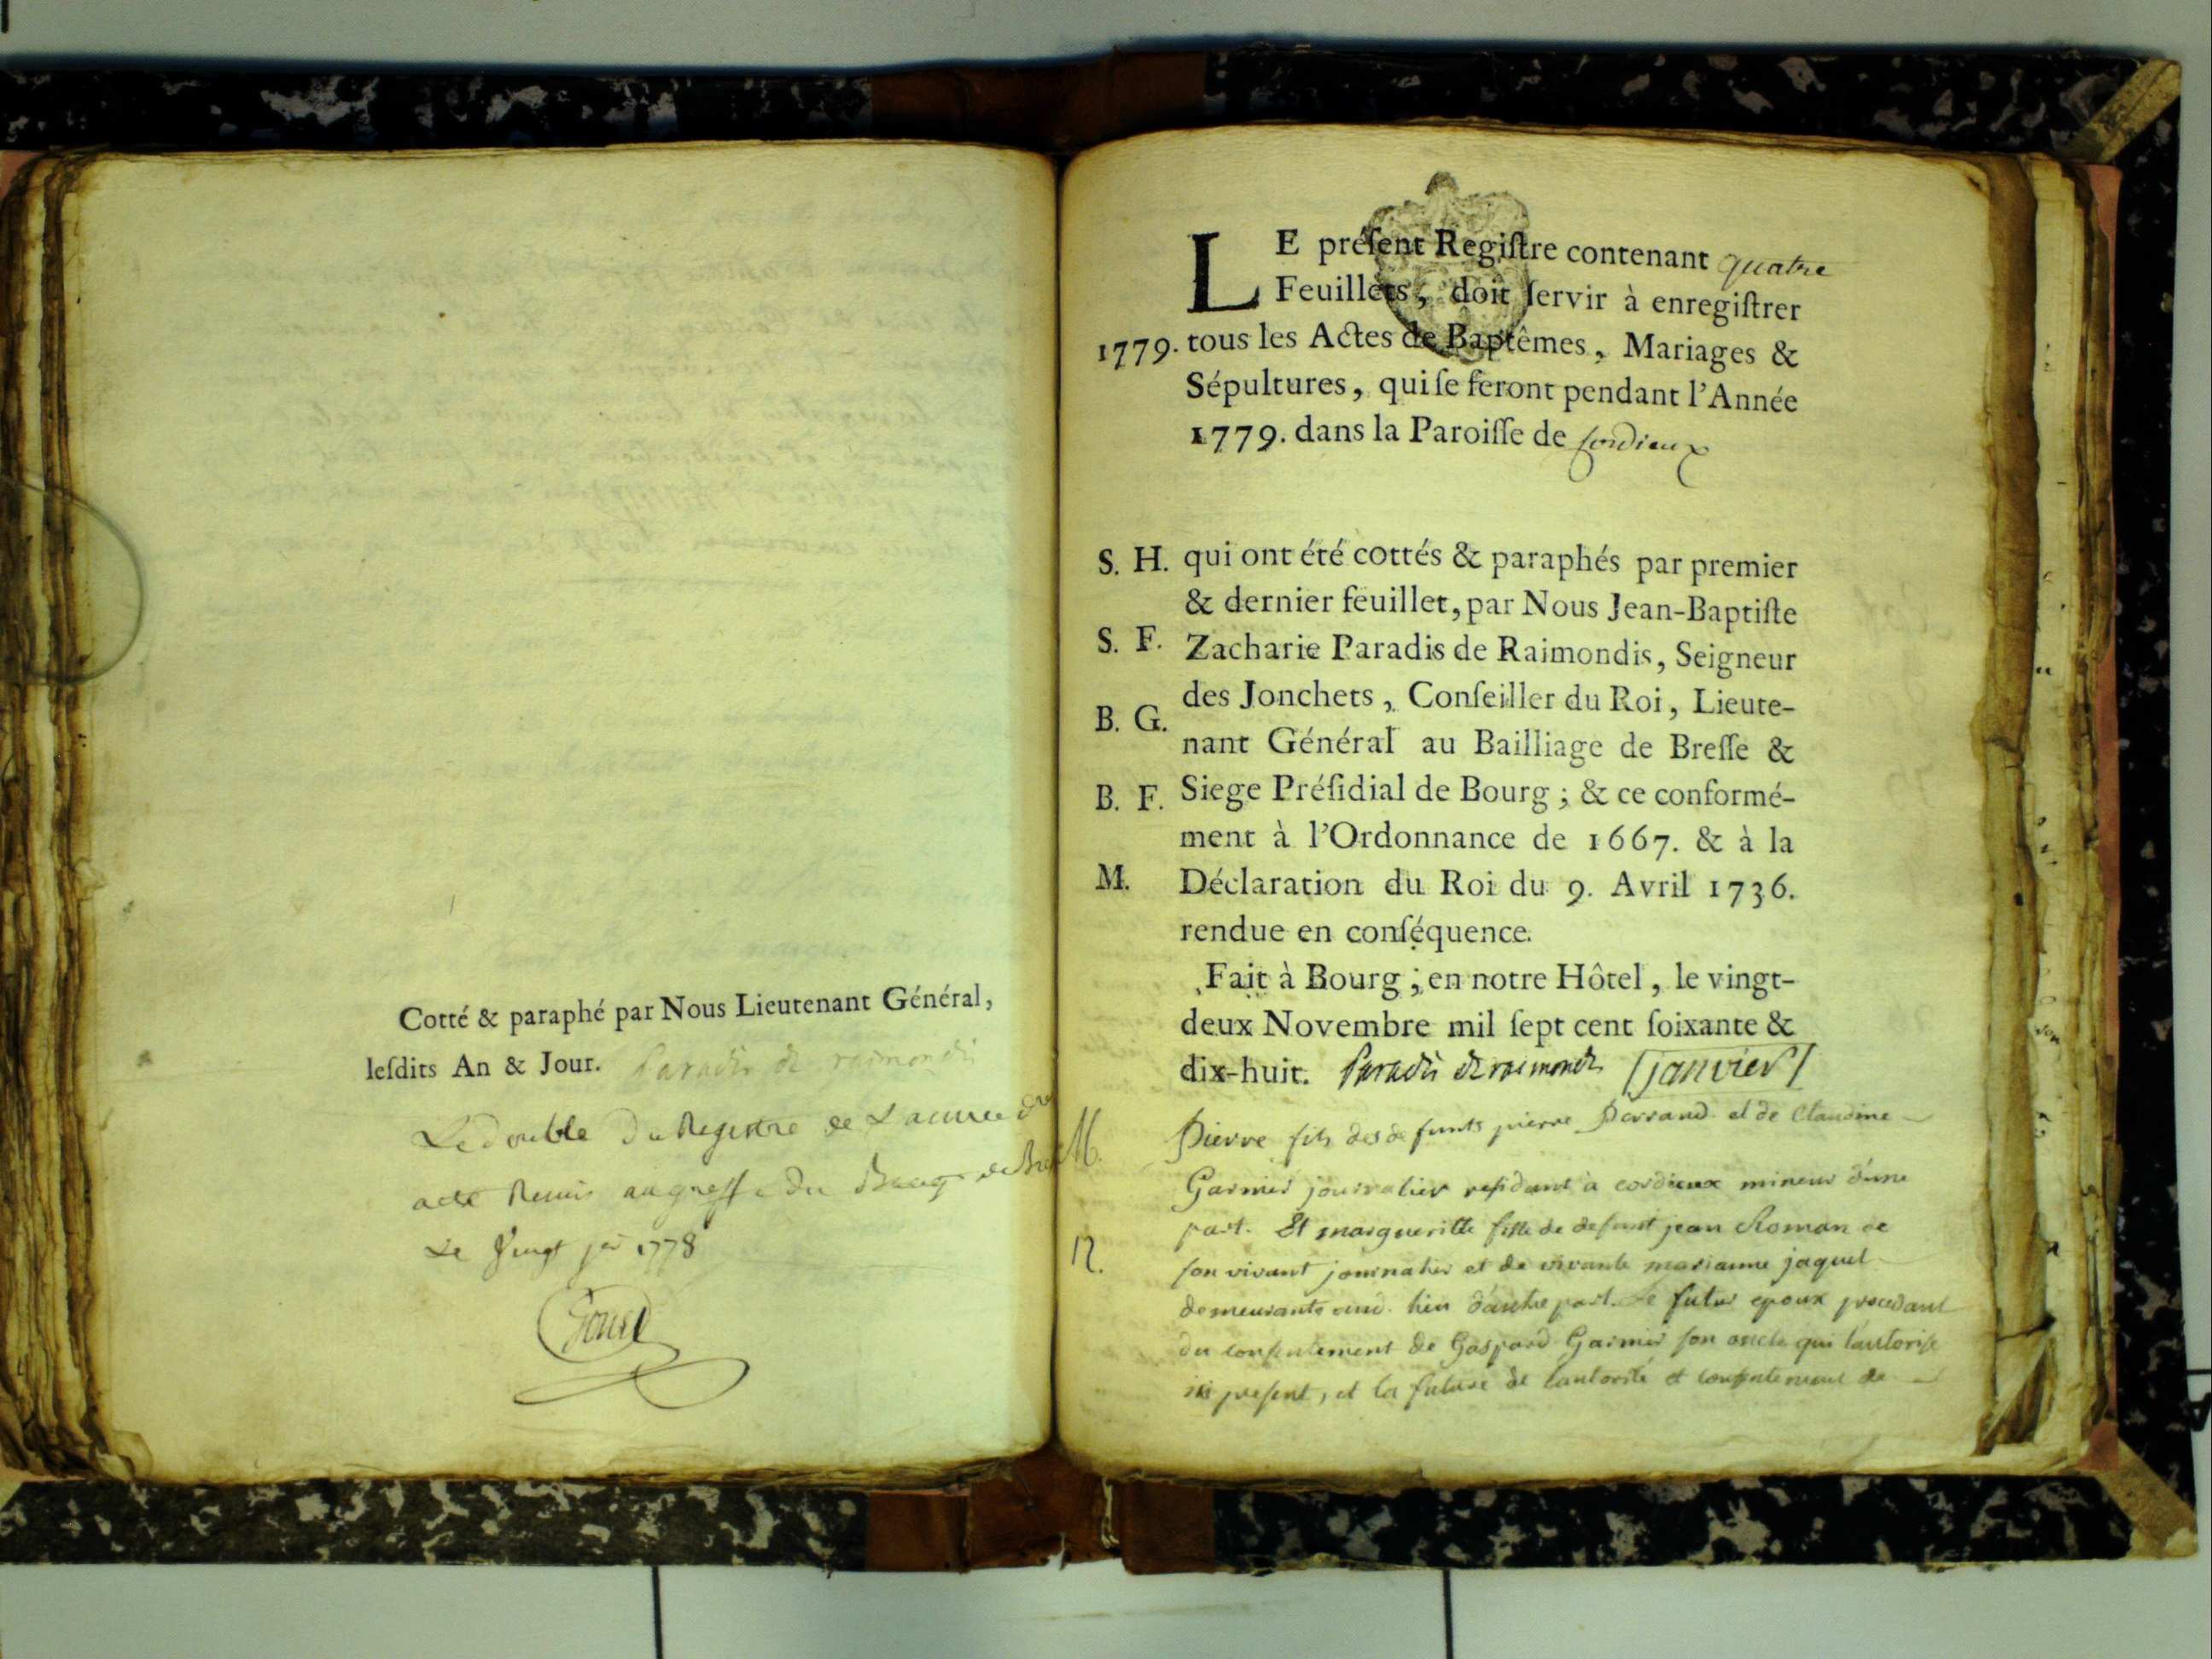 Cotté & paraphé par Nous Lieutenant Général,
leſdits An & Jour. Paradis de raimondis
Le double du Registre de L'annee
acté Remis au greffe du Bourg de
Le Vingt 1778
LE préſent Regiſtre contenant quatre
Feuillets, doit ſervir à enregiſtrer
1779. tous les Actes de Baptêmes, Mariages &
Sépultures, qui ſe feront pendant l'Année
1779. dans la Paroiſſe de Cordieux
S. H. qui ont été cottés & paraphés par premier
& dernier feuillet, par Nous Jean-Baptiſte
S. F. Zacharie Paradis de Raimondis, Seigneur
des Jonchets, Conſeiller du Roi, Lieute-
B. G. nant Général au Bailliage de Breſſe &
B. F. Siege Préſidial de Bourg ; & ce conformé-
ment à l'Ordonnance de 1667. & à la
M. Déclaration du Roi du 9. Avril 1736.
rendue en conſéquence.
Fait à Bourg ; en notre Hôtel, le vingt-
deux Novembre mil ſept cent ſoixante &
dix-huit. Paradis de raimondis [janvier]
M. Pierre fils des defunts pierre Darrand et de Claudine
Garnier journalier reſidant à cordieux mineur d'une
part. Et margueritte fille de defunt jean Roman de
12. ſon vivant journalier et de vivante marianne jaquet
demeurante aud. lieu d'autre part. Le futur epoux procedant
du conſentement de Gaspard Garnier ſon oncle qui l'autoriſe
ici preſent, et la future de l'autorité et conſentement de